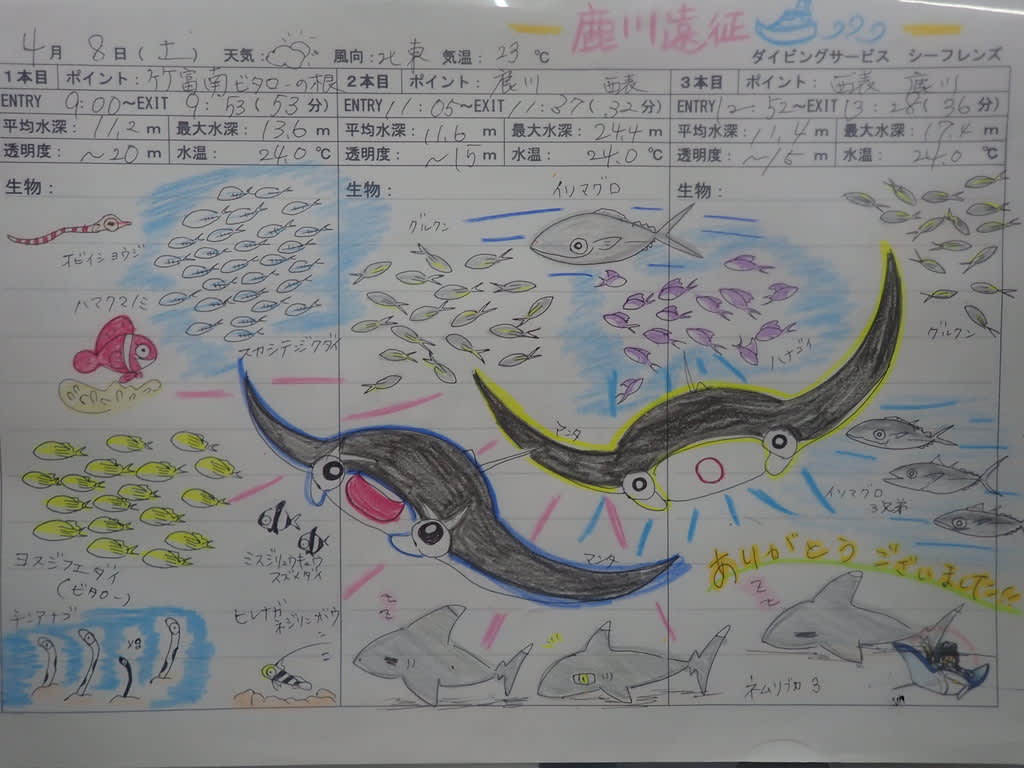 鹿川遠征
4月 8日(土) 天気: 風向:北東 気温: 23 ℃ ダイビングサービス シーフレンズ
1本目 ポイント:竹富南ビタローの根 2本目 ポイント:鹿川 西表 3本目 ポイント:西表 鹿川
ENTRY 9:00〜EXIT 9:53(53分) ENTRY 11:05〜EXIT 11:37(32分) ENTRY 12:52〜EXIT 13:28(36分)
平均水深:11.2 m 最大水深:13.6 m 平均水深:11.6 m 最大水深:24.4 m 平均水深:11.4 m 最大水深:17.4 m
透明度:〜20 m 水温:24.0 ℃ 透明度:〜15 m 水温:24.0 ℃ 透明度:〜15 m 水温:24.0 ℃
生物: 生物: 生物:
イソマグロ
グルクン
オビイショウジ
ハマクマノミ
スカシテンジクダイ
ハナゴイ
グルクン
マンタ
イソマグロ
3兄弟
ヨスジフエダイ
(ビタロー)
ミスジリュウキュウ
スズメダイ
マンタ
ありがとうございました!!
チンアナゴ
ヒレナガ
ネジリンボウ
zz
zz
ネムリブカ 3